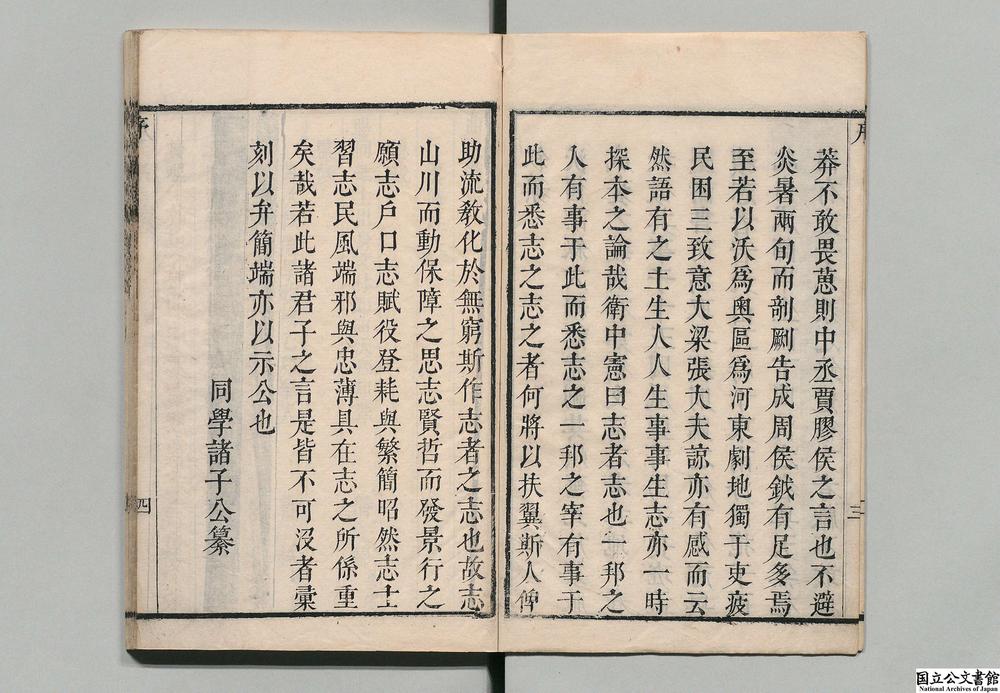 莽不敢畏葸則中丞賈膠侯之言也不避
炎暑兩旬而剞劂告成周侯鉞有足多焉
至若以沃爲輿區爲河東劇地獨于吏疲
民困三致意大梁張大夫諒亦有感而云
然語有之土生人人生事事生志亦一時
探本之論哉衛中憲曰志者志也一邦之
人有事于此而悉志之一邦之宰有事于
此而悉志之志之者何將以扶翼斯人俾
助流教化於無窮斯作志者之志也故志
山川而動保障之思志賢哲而發景行之
願志戶口志賦役登耗與繁簡昭然志士
習志民風端邪與忠薄具在志之所係重
矣哉若此諸君子之言是皆不可沒者彙
刻以弁簡端亦以示公也
同學諸子公纂
序
三
四
国立公文書館
National Archives of Japan